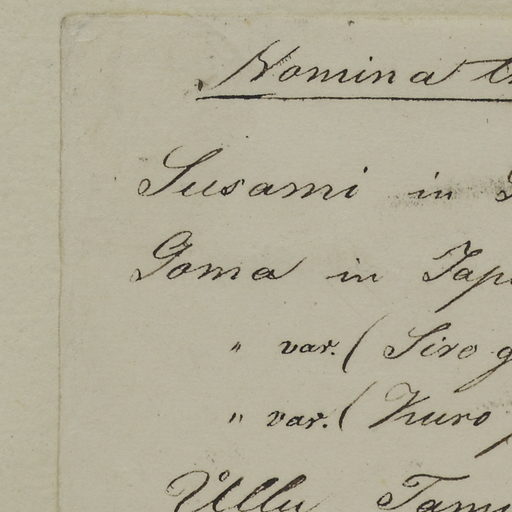 Nomina
Susami in
Goma in Jap
" var. (Siro g
" var. (Kuro
Ellu Tam